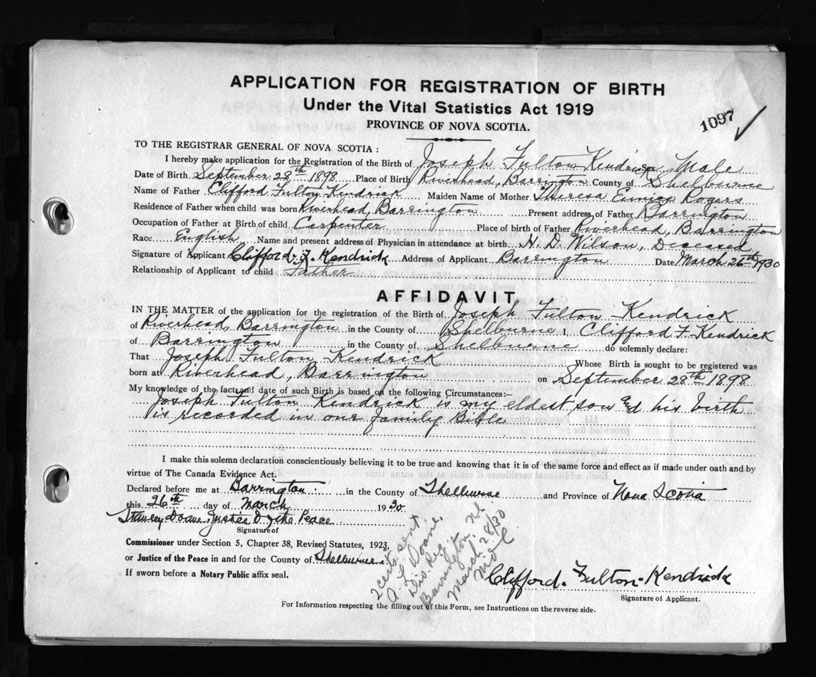 APPLICATION FOR REGISTRATION OF BIRTH
Under the Vital Statistics Act 1919
PROVINCE OF NOVA SCOTIA.
1097
TO THE REGISTRAR GENERAL OF NOVA SCOTIA :
I hereby make application for the Registration of the Birth of Joseph Fulton Kendrick, Male
Date of Birth September 28th 1898 Place of Birth Riverhead, Barrington County of Shelburne
Name of Father Clifford Fulton Kendrick Maiden Name of Mother Theresa Eunice Rogers
Residence of Father when child was born Riverhead, Barrington Present address of Father Barrington
Occupation of Father at Birth of child Carpenter Place of birth of Father Riverhead, Barrington
Race English Name and present address of Physician in attendance at birth H. D. Wilson, Deceased
Signature of Applicant Clifford. F. Kendrick Address of Applicant Barrington Date March 26th 1930
Relationship of Applicant to child Father
AFFIDAVIT
IN THE MATTER of the application for the registration of the Birth of Joseph Fulton Kendrick
of Riverhead, Barrington in the County of Shelburne I, Clifford F. Kendrick
of Barrington in the County of Shelburne do solemnly declare:
That Joseph Fulton Kendrick Whose Birth is sought to be registered was
born at Riverhead, Barrington on September 28th 1898
My knowledge of the fact and date of such Birth is based on the following Circumstances:—
Joseph Fulton Kendrick is my eldest son & his birth
is recorded in our family Bible
I make this solemn declaration conscientiously believing it to be true and knowing that it is of the same force and effect as if made under oath and by
virtue of The Canada Evidence Act.
Declared before me at Barrington in the County of Shelburne and Province of Nova Scotia
this 26th day of March 1930
Doane, Justice of the Peace
Signature of
Commissioner under Section 5, Chapter 38, Revised Statutes, 1923,
or Justice of the Peace in and for the County of Shelburne
If sworn before a Notary Public affix seal.
sent
Doane,
Dis. Reg.
Barrington, NS
March 28/30
Clifford. Fulton. Kendrick
Signature of Applicant.
For Information respecting the filling out of this Form, see Instructions on the reverse side.